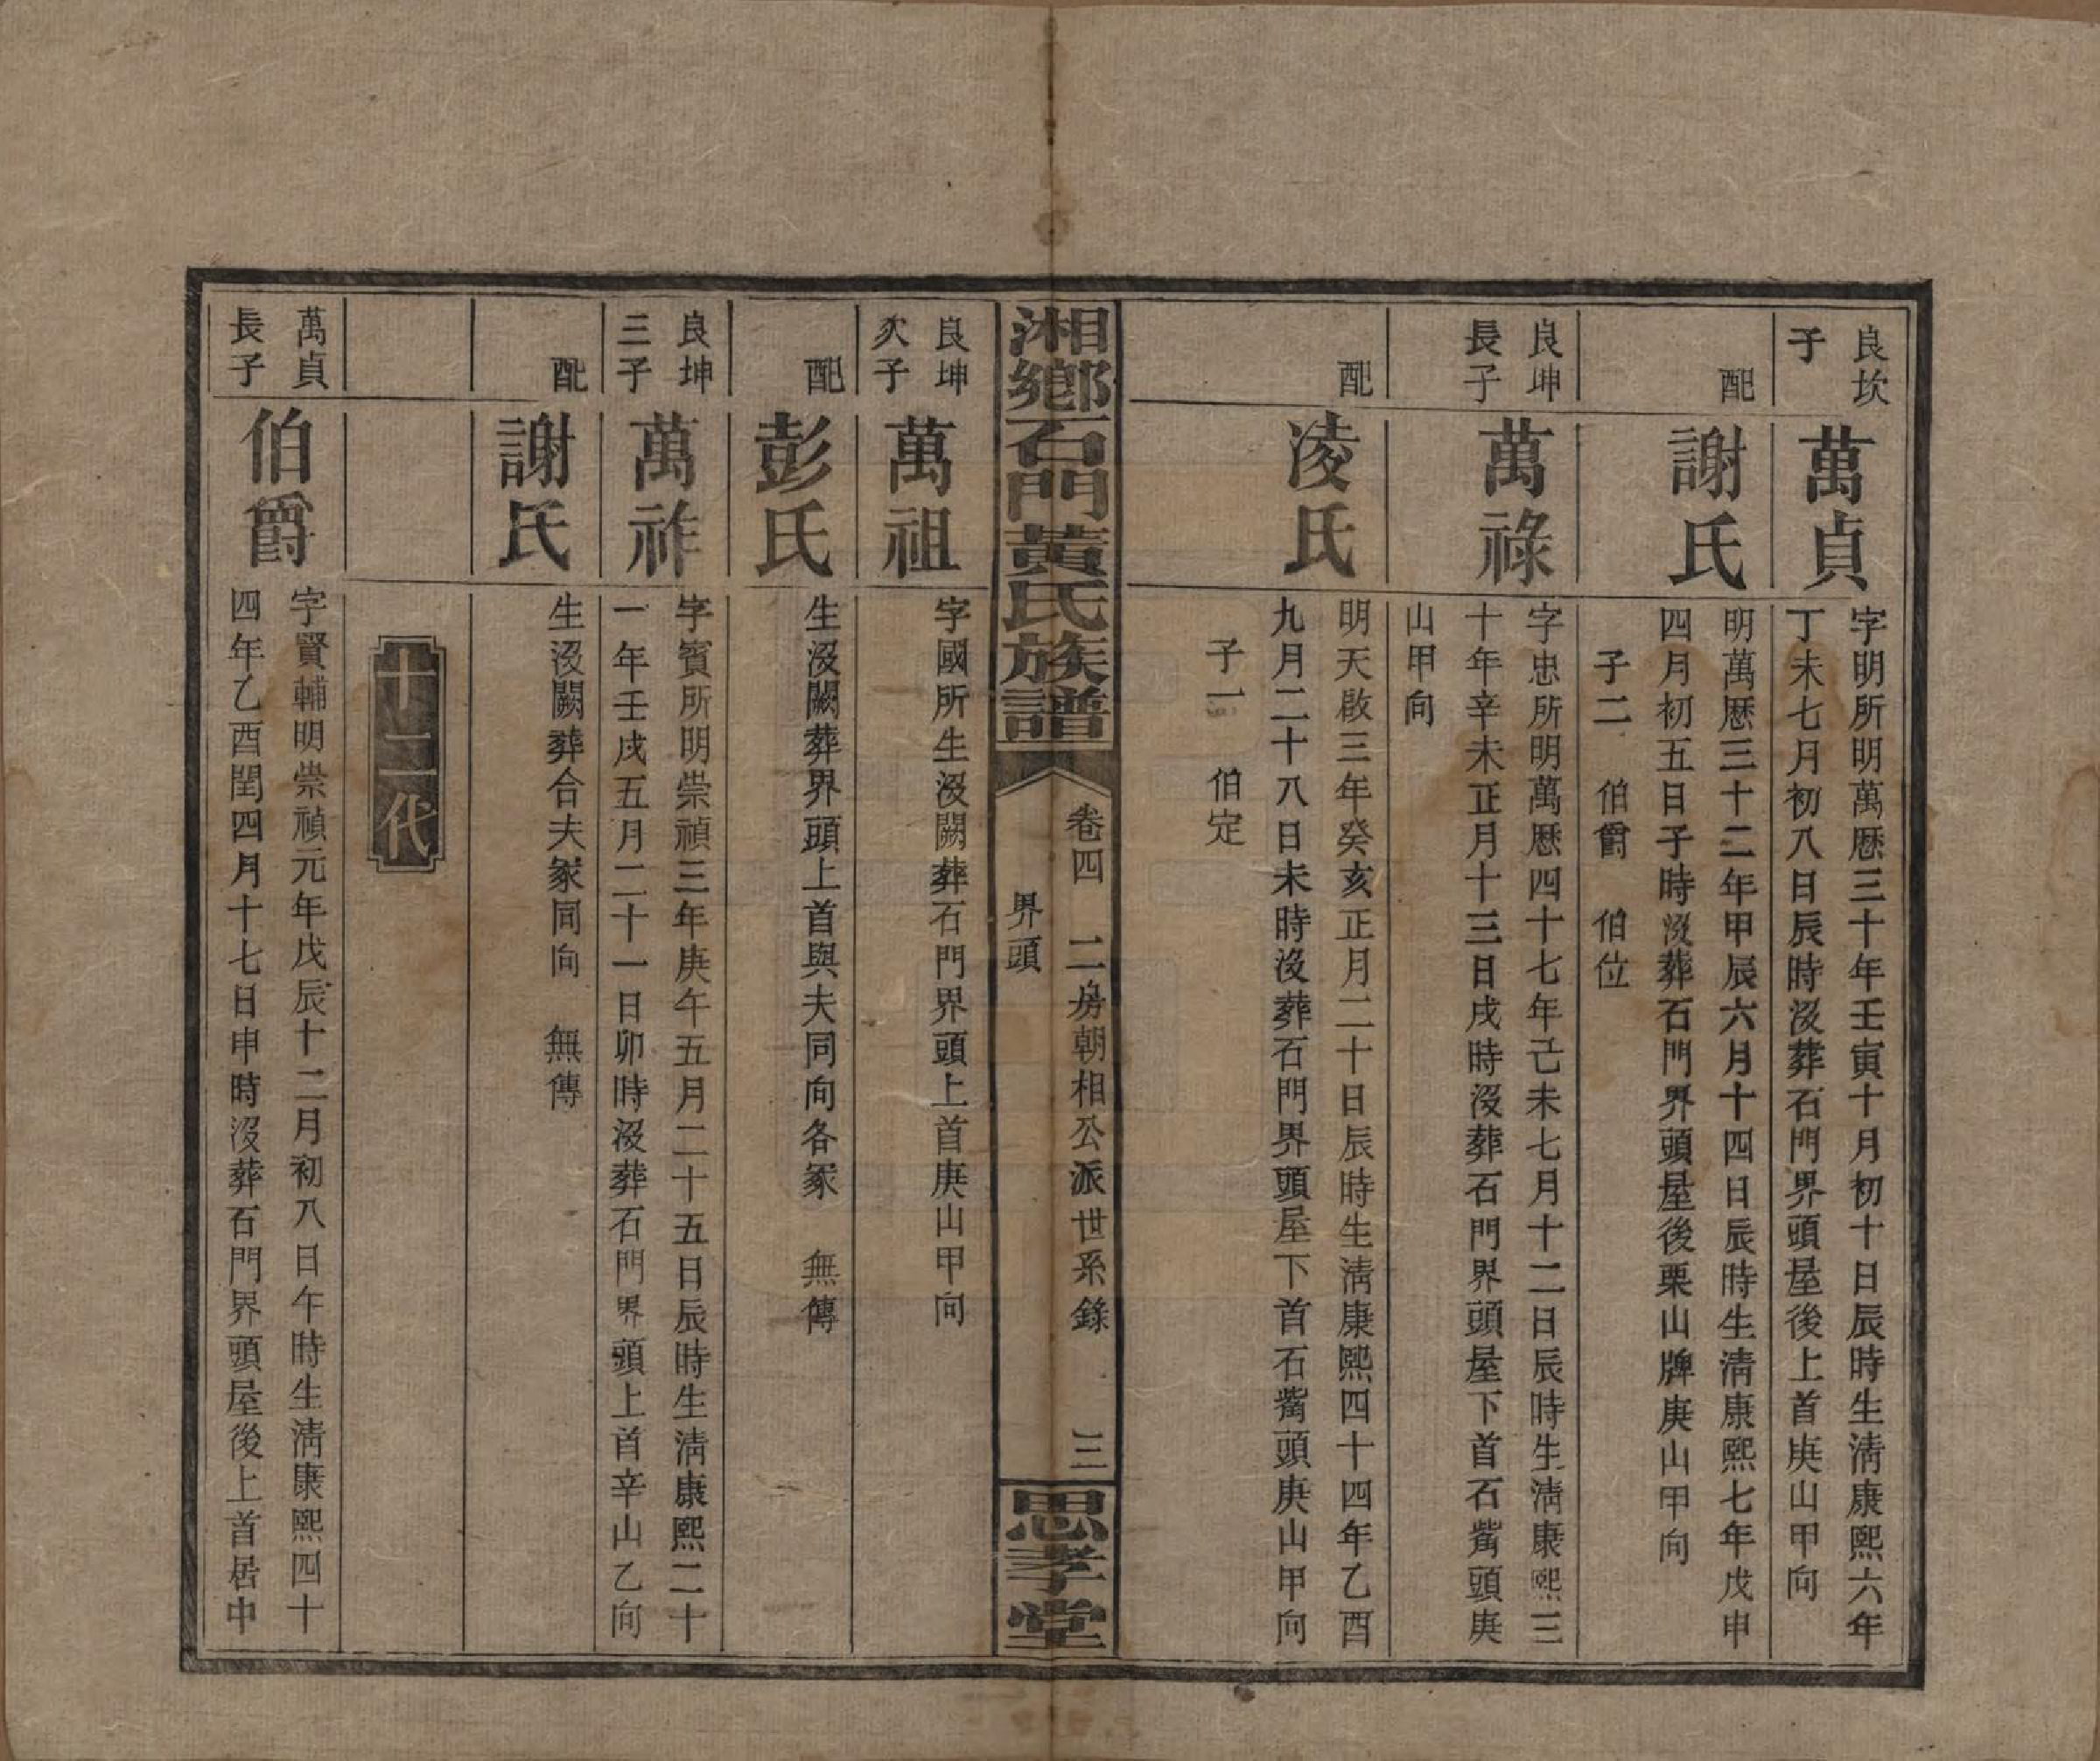 良坎
子
萬貞
字明所明萬厯三十年壬寅十月初十日辰時生淸康熙六年
丁未七月初八日辰時沒葬石門界頭屋後上首庚山甲向
配
謝氏
明萬厯三十二年甲辰六月十四日辰時生淸康熙七年戊申
四月初五日子時沒葬石門界頭屋後栗山牌庚山甲向
子二 伯爵 伯位
良坤
長子
萬祿
字忠所明萬厯四十七年己未七月十二日辰時生淸康熙三
十年辛未正月十三日戌時沒葬石門界頭屋下首石觜頭庚
山甲向
配
凌氏
明天啟三年癸亥正月二十日辰時生淸康熙四十四年乙酉
九月二十八日未時沒葬石門界頭屋下首石觜頭庚山甲向
子一 伯定
湘鄉石門黃氏族譜
卷四 二房朝相公派世系錄 三
界頭
思孝堂
良坤
次子
萬祖
字國所生沒闕葬石門界頭上首庚山甲向
配
彭氏
生沒闕葬界頭上首與夫同向各冢 無傳
良坤
三子
萬祚
字賓所明崇禎三年庚午五月二十五日辰時生淸康熙二十
一年壬戌五月二十一日卯時沒葬石門界頭上首辛山乙向
配
謝氏
生沒闕葬合夫冢同向 無傳
十二代
萬貞
長子
伯爵
字賢輔明崇禎元年戊辰十二月初八日午時生淸康熙四十
四年乙酉閏四月十七日申時沒葬石門界頭屋後上首居中